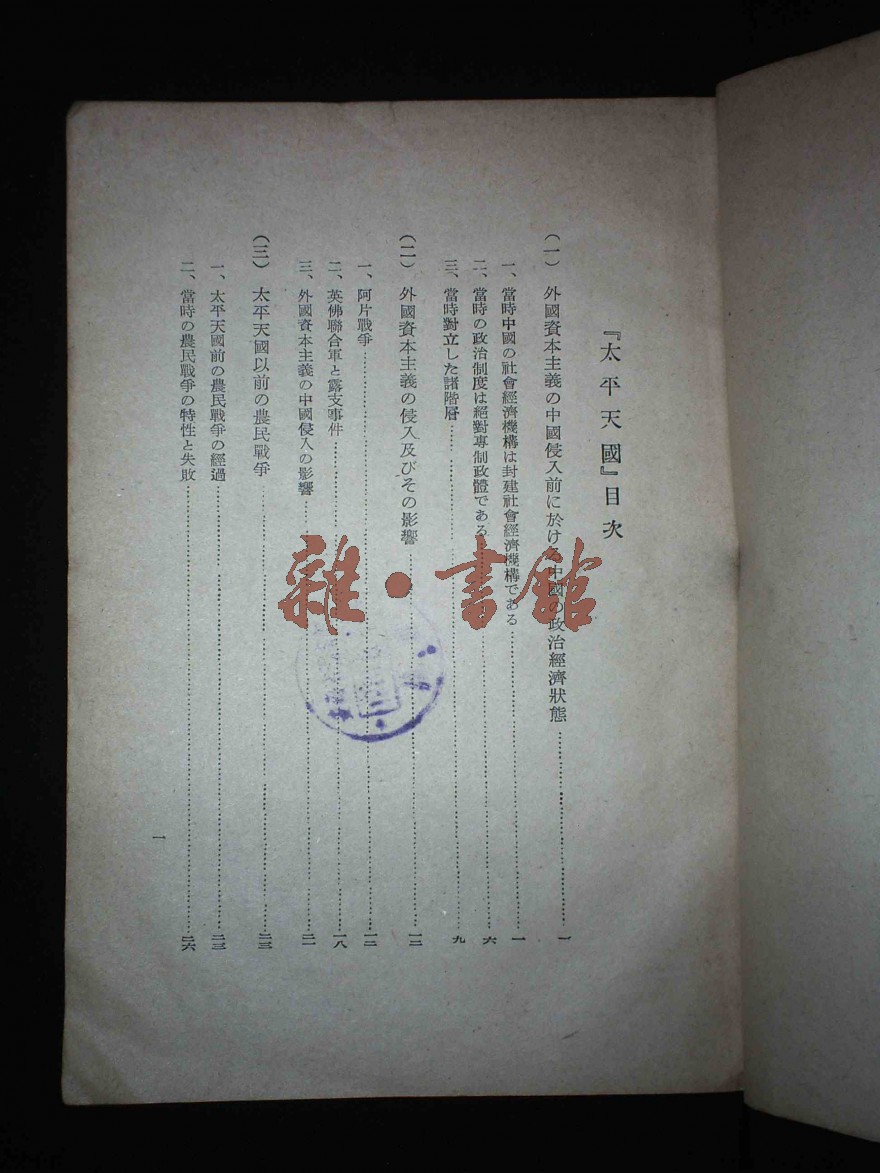 『太平天國』目次
（一）　外國資本主義の中國侵入前に於ける中國の政治經濟狀態……一
一、當時中國の社會經濟機構は封建社會經濟機構である……一
二、當時の政治制度は絕對專制政體である……六
三、當時對立した諸階層……九
（二）　外國資本主義の侵入及びその影響……一二
一、阿片戰爭……一二
二、英佛聯合軍と露支事件……一八
三、外國資本主義の中國侵入の影響……二一
（三）　太平天國以前の農民戰爭……二三
一、太平天國前の農民戰爭の經過……二三
二、當時の農民戰爭の特性と失敗……二六
一
雜·書館